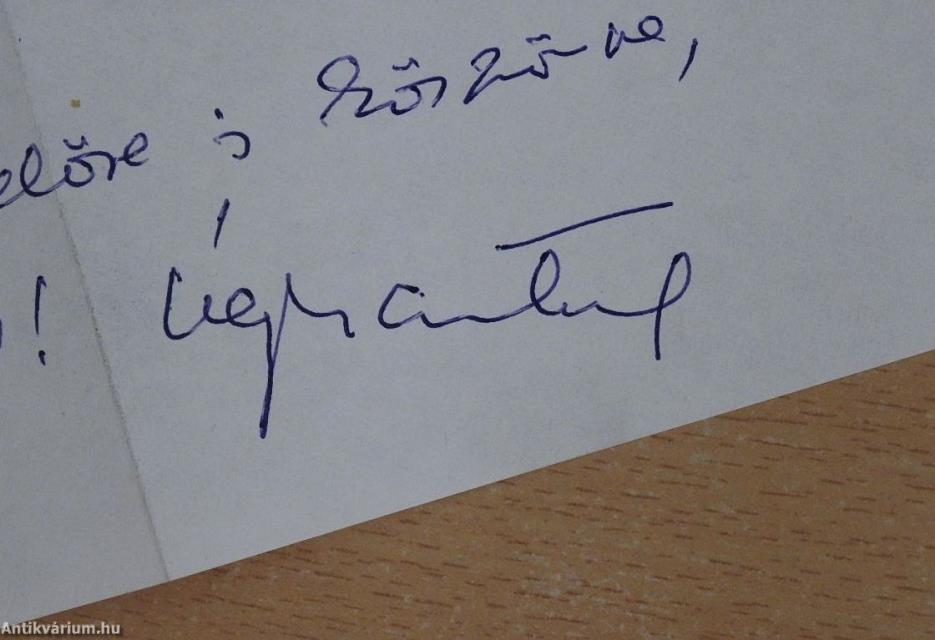 előre is köszönve,
!
Antikvárium.hu